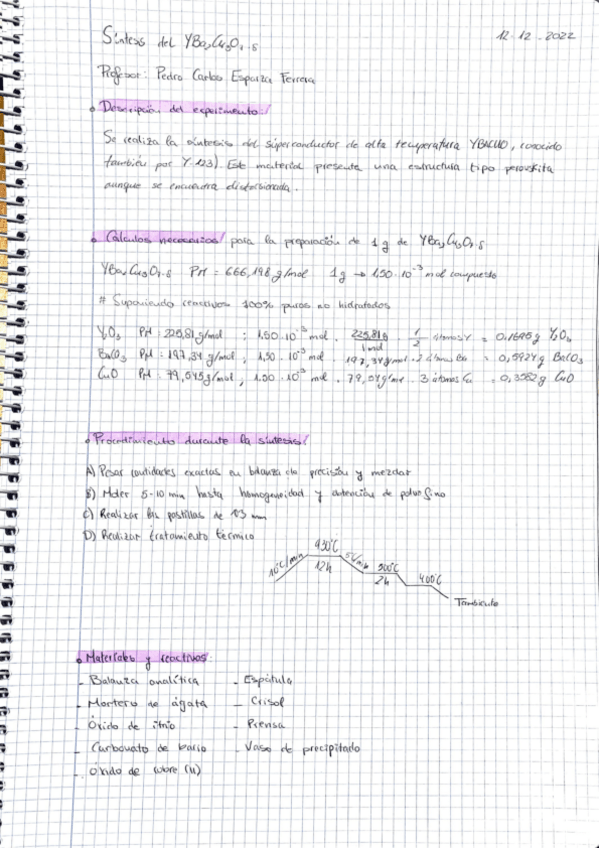 Síntesis del YBa₂Cu₃O₇₋δ 12-12-2022
Profesor: Pedro Carlos Esparza Ferrera
• Descripción del experimento:/
Se realiza la síntesis del superconductor de alta temperatura YBACUO, conocido
también por Y-123). Este material presenta una estructura tipo perovskita
aunque se encuentra distorsionada.
• Cálculos necesarios/ para la preparación de 1g de YBa₂Cu₃O₇₋δ
YBa₂Cu₃O₇₋δ PM = 666,198 g/mol 1g → 1,50·10⁻³ mol compuesto
# Suponiendo reactivos 100% puros no hidratados
Y₂O₃ PM: 225,81 g/mol ; 1,50·10⁻³ mol · 225,81g/1mol · 1/2 átomos Y = 0,1695g Y₂O₃
BaCO₃ PM: 197,34 g/mol ; 1,50·10⁻³ mol · 197,34g/mol · 2 átomos Ba = 0,5924g BaCO₃
CuO PM: 79,545g/mol ; 1,50·10⁻³ mol · 79,54g/mol · 3 átomos Cu = 0,3582g CuO
• Procedimiento durante la síntesis/
A) Pesar cantidades exactas en balanza de precisión y mezclar
B) Moler 5-10 min hasta homogeneidad y obtención de polvo fino
C) Realizar las pastillas de 13 mm
D) Realizar tratamiento térmico
10°C/min 930°C 12h 5°C/min 500°C 2h 400°C
Tambiente
• Materiales y reactivos:
- Balanza analítica - Espátula
- Mortero de ágata - Crisol
- Óxido de itrio - Prensa
- Carbonato de bario - Vaso de precipitado
- Óxido de cobre (II)